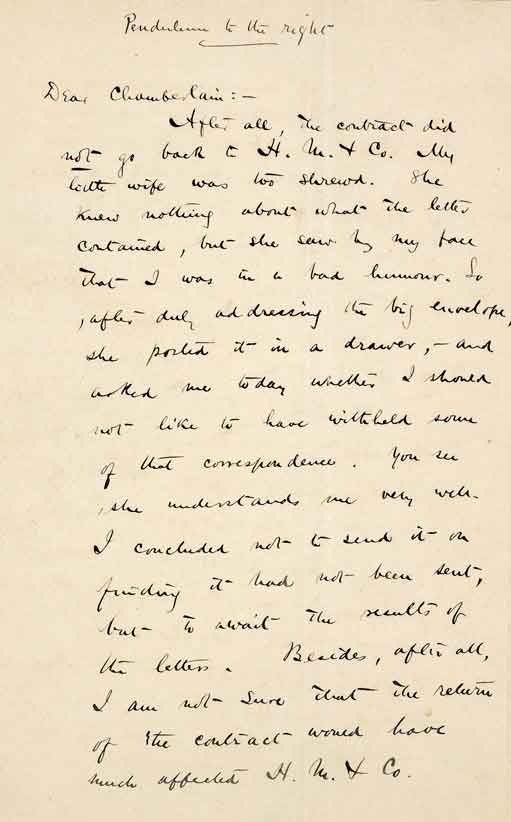 Pendulum to the right
Dear Chamberlain:—
After all, the contract did
not go back to H. M. & Co. My
little wife was too shrewd. She
knew nothing about what the letter
contained, but she saw by my face
that I was in a bad humour. So
, after duly addressing the big envelope,
she posted it in a drawer, — and
asked me today whether I should
not like to have withheld some
of that correspondence. You see
, she understands me very well.
I concluded not to send it on
finding it had not been sent,
but to await the results of
the letters. Besides, after all,
I am not sure that the return
of the contract would have
much affected H. M. & Co.